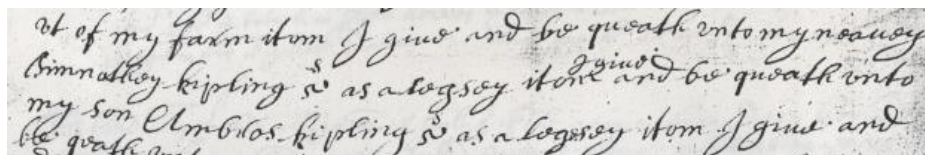 ut of my farm itom I give and be queath unto my neavey
Bimnathey kipling 5s as a legsey itom I give and be queath unto
my son Ambros kipling 5s as a legesey itom I give and
be queath unt